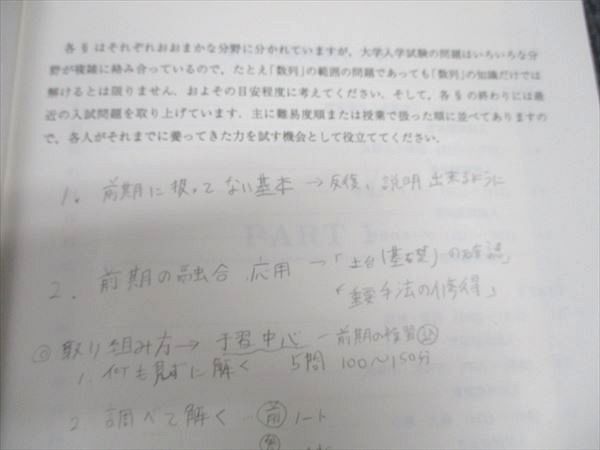 各§はそれぞれおおまかな分野に分かれていますが，大学入学試験の問題はいろいろな分
野が複雑に絡み合っているので，たとえ「数列」の範囲の問題であっても「数列」の知識だけでは
解けるとは限りません．およその目安程度に考えてください．そして，各§の終わりには最
近の入試問題を取り上げています．主に難易度順または授業で扱った順に並べてありますの
で，各人がそれまでに養ってきた力を試す機会として役立ててください．
1. 前期に扱ってない基本 → 反復、説明出来るように
2. 前期の融合 応用 →「土台(基礎)の確認」
「重要手法の修得」
◎取り組み方→ 予習中心 ―前期の復習
1. 何も見ずに解く 5問 100〜150分
2. 調べて解く 前 ノート